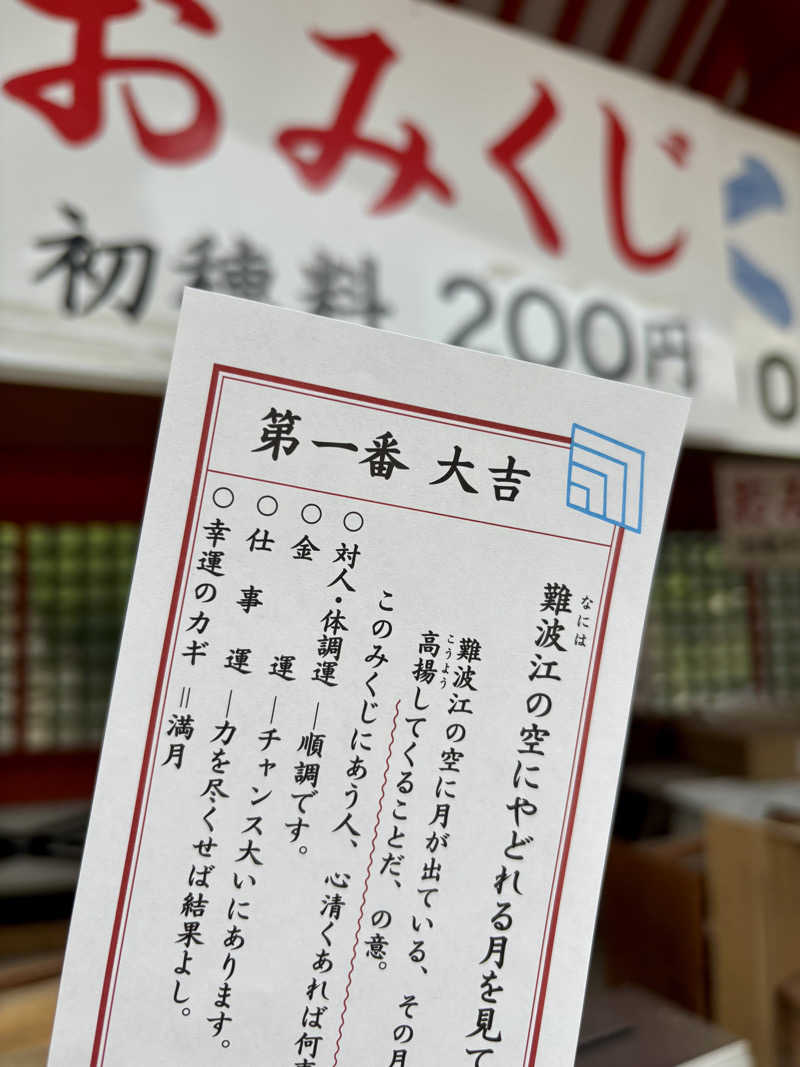 おみくじ
初穂料 200円
第一番 大吉
難波江の空にやどれる月を見て
なには
難波江の空に月が出ている、その月
高揚してくることだ、の意。
こうよう
このみくじにあう人、心清くあれば何事
○対人・体調運―順調です。
○金運―チャンス大いにあります。
○仕事運―力を尽くせば結果よし。
○幸運のカギ=満月